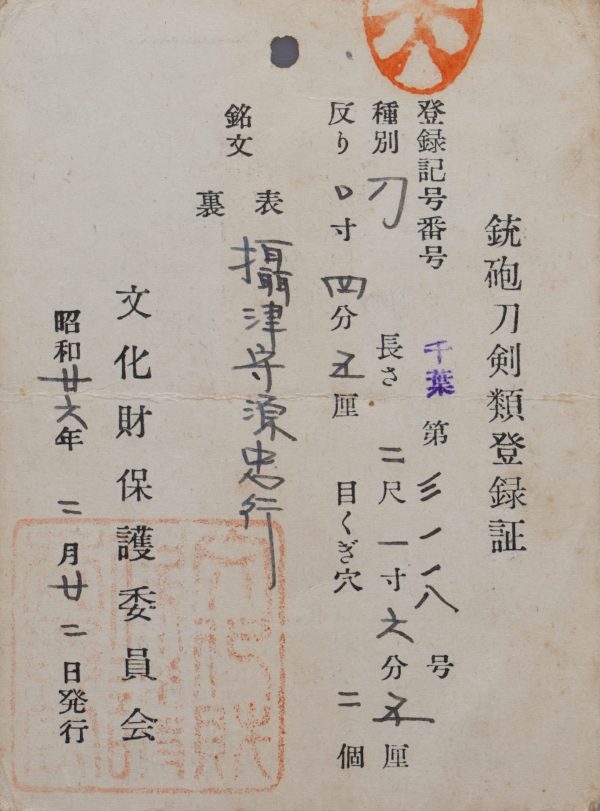 銃砲刀剣類登録証
登録記号番号 千葉 第三一一八号
種別 刀 長さ 二尺一寸六分五厘
反り 〇寸四分五厘 目くぎ穴 二個
銘文 表 攝津守源忠行
裏
文化財保護委員会
昭和廿六年二月廿二日発行